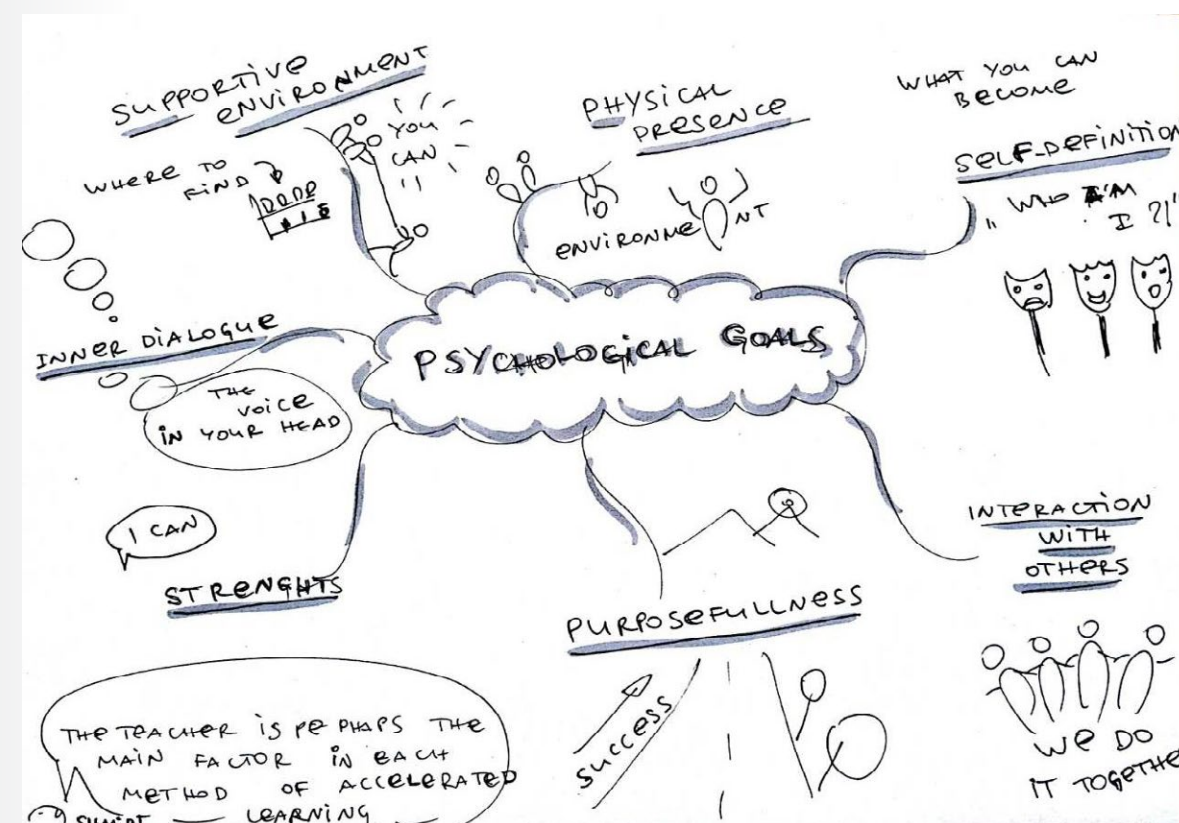 SUPPORTIVE
ENVIRONMENT
WHERE TO
FIND
YOU
CAN
PHYSICAL
PRESENCE
ENVIRONME NT
WHAT YOU CAN
BECOME
SELF-DEFINITION
„ WHO A'M
I ?!"
PSYCHOLOGICAL GOALS
INNER DIALOGUE
THE
VOICE
IN YOUR HEAD
I CAN
STRENGHTS
PURPOSEFULLNESS
SUCCESS
INTERACTION
WITH
OTHERS
WE DO
IT TOGETHE
THE TEACHER IS PE PHAPS THE
MAIN FACTOR IN EACH
METHOD OF ACCELERATED
LEARNING